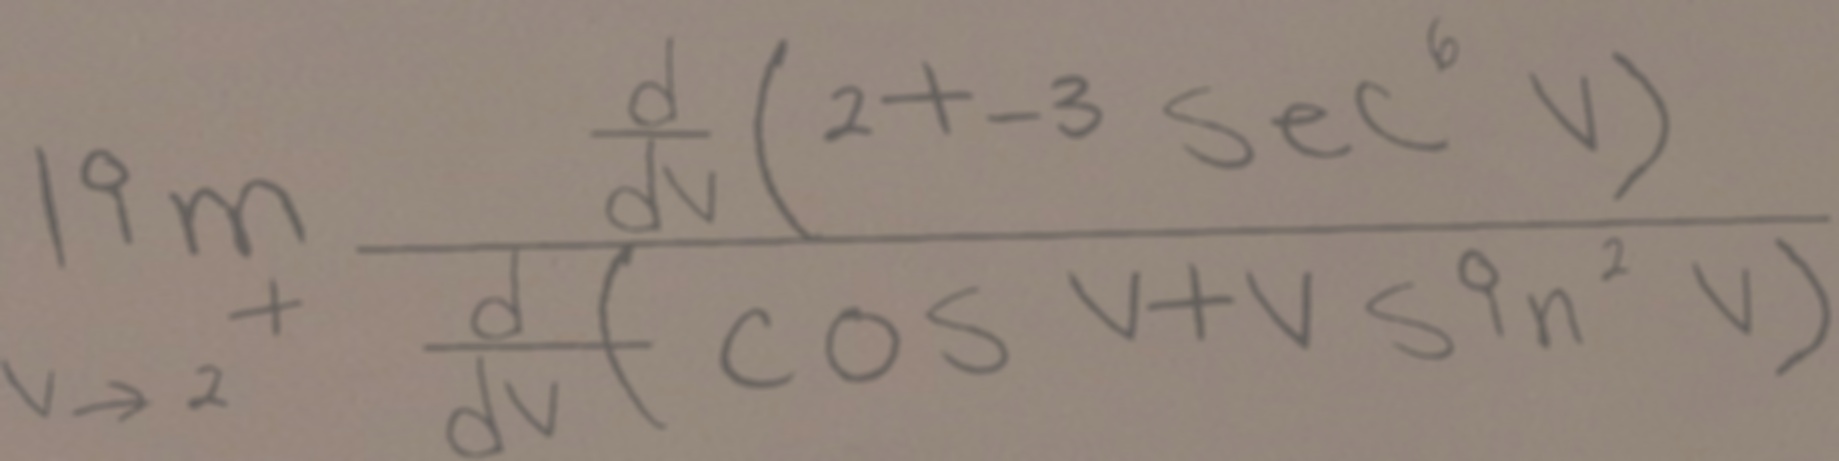 \lim_{v \to 2^+} \frac{\frac{d}{dv}(2+-3 \sec^6 v)}{\frac{d}{dv}(\cos v + v \sin^2 v)}